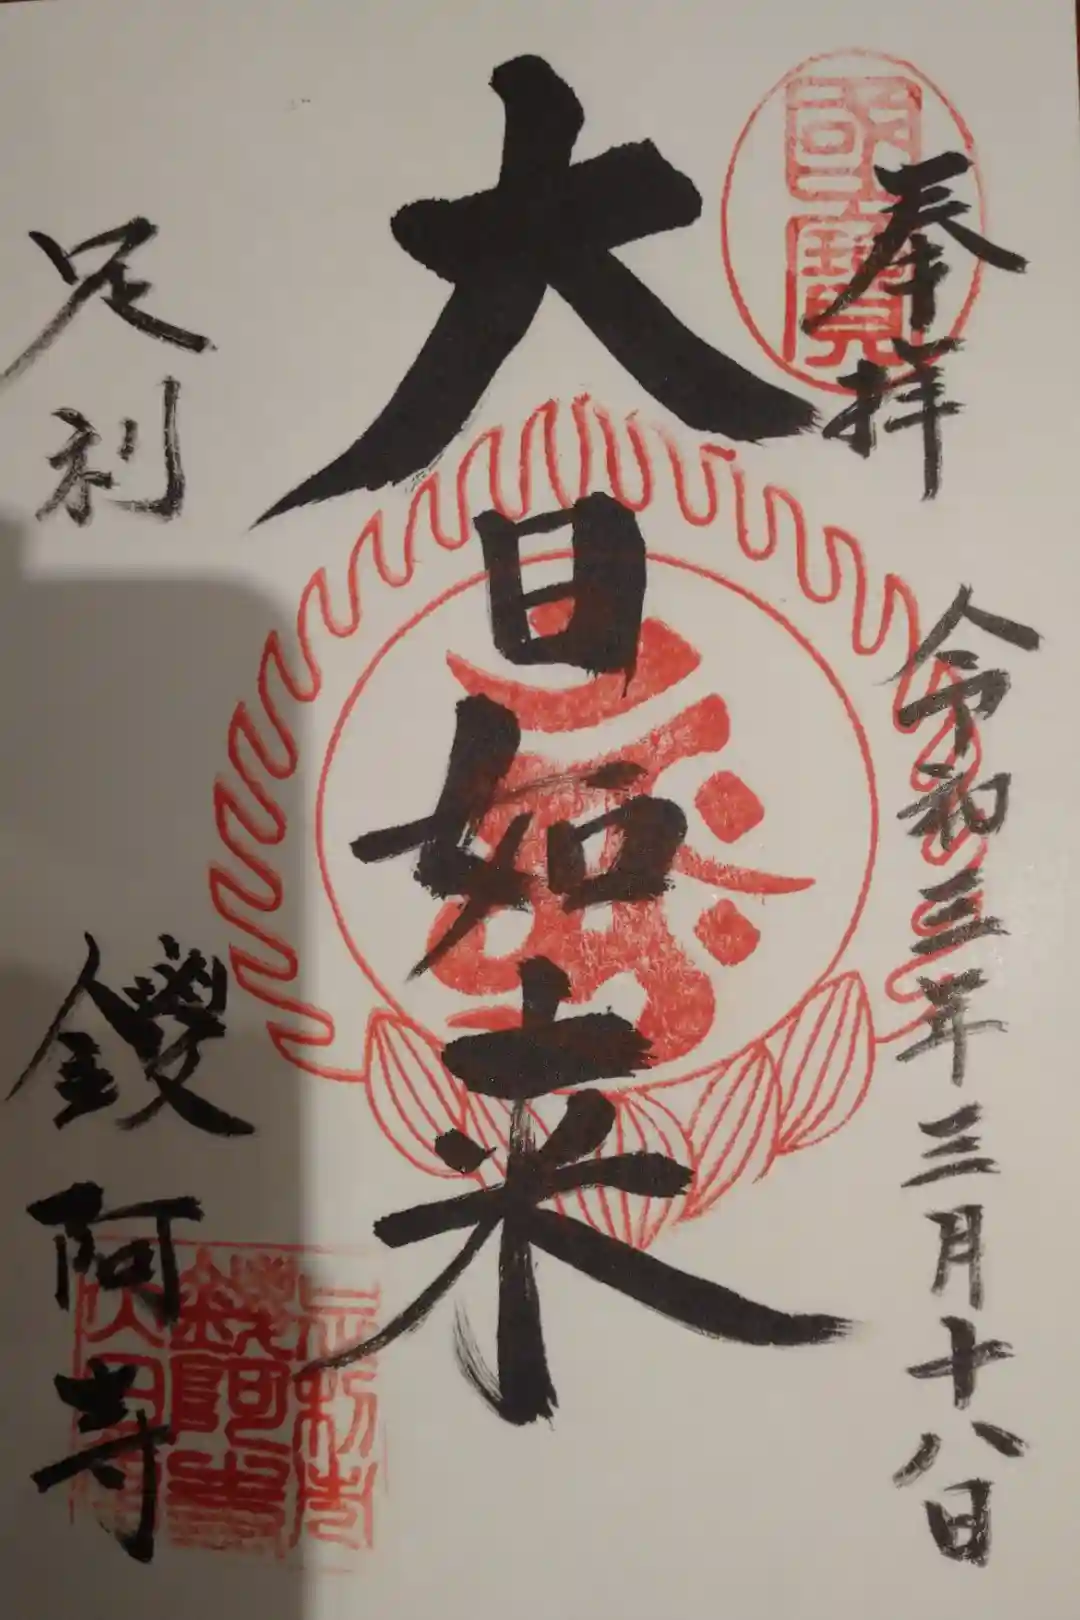 奉拝
令和三年三月十八日
大日如来
足利
鑁阿寺
國寳
足利市
鑁阿寺